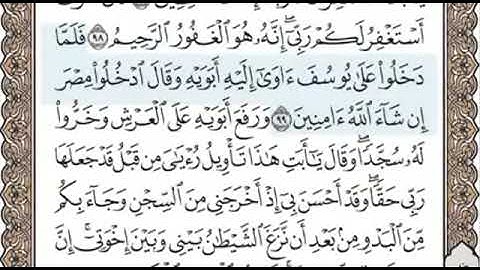 أَسْتَغْفِرُ لَكُمْ رَبِّىٓ ۖ إِنَّهُۥ هُوَ ٱلْغَفُورُ ٱلرَّحِيمُ ٩٨ فَلَمَّا
دَخَلُوا۟ عَلَىٰ يُوسُفَ ءَاوَىٰٓ إِلَيْهِ أَبَوَيْهِ وَقَالَ ٱدْخُلُوا۟ مِصْرَ
إِن شَآءَ ٱللَّهُ ءَامِنِينَ ٩٩ وَرَفَعَ أَبَوَيْهِ عَلَى ٱلْعَرْشِ وَخَرُّوا۟
لَهُۥ سُجَّدًا ۖ وَقَالَ يَـٰٓأَبَتِ هَـٰذَا تَأْوِيلُ رُءْيَـٰىَ مِن قَبْلُ قَدْ جَعَلَهَا
رَبِّى حَقًّا ۖ وَقَدْ أَحْسَنَ بِىٓ إِذْ أَخْرَجَنِى مِنَ ٱلسِّجْنِ وَجَآءَ بِكُم
مِّنَ ٱلْبَدْوِ مِنۢ بَعْدِ أَن نَّزَغَ ٱلشَّيْطَـٰنُ بَيْنِى وَبَيْنَ إِخْوَتِىٓ ۚ إِنَّ